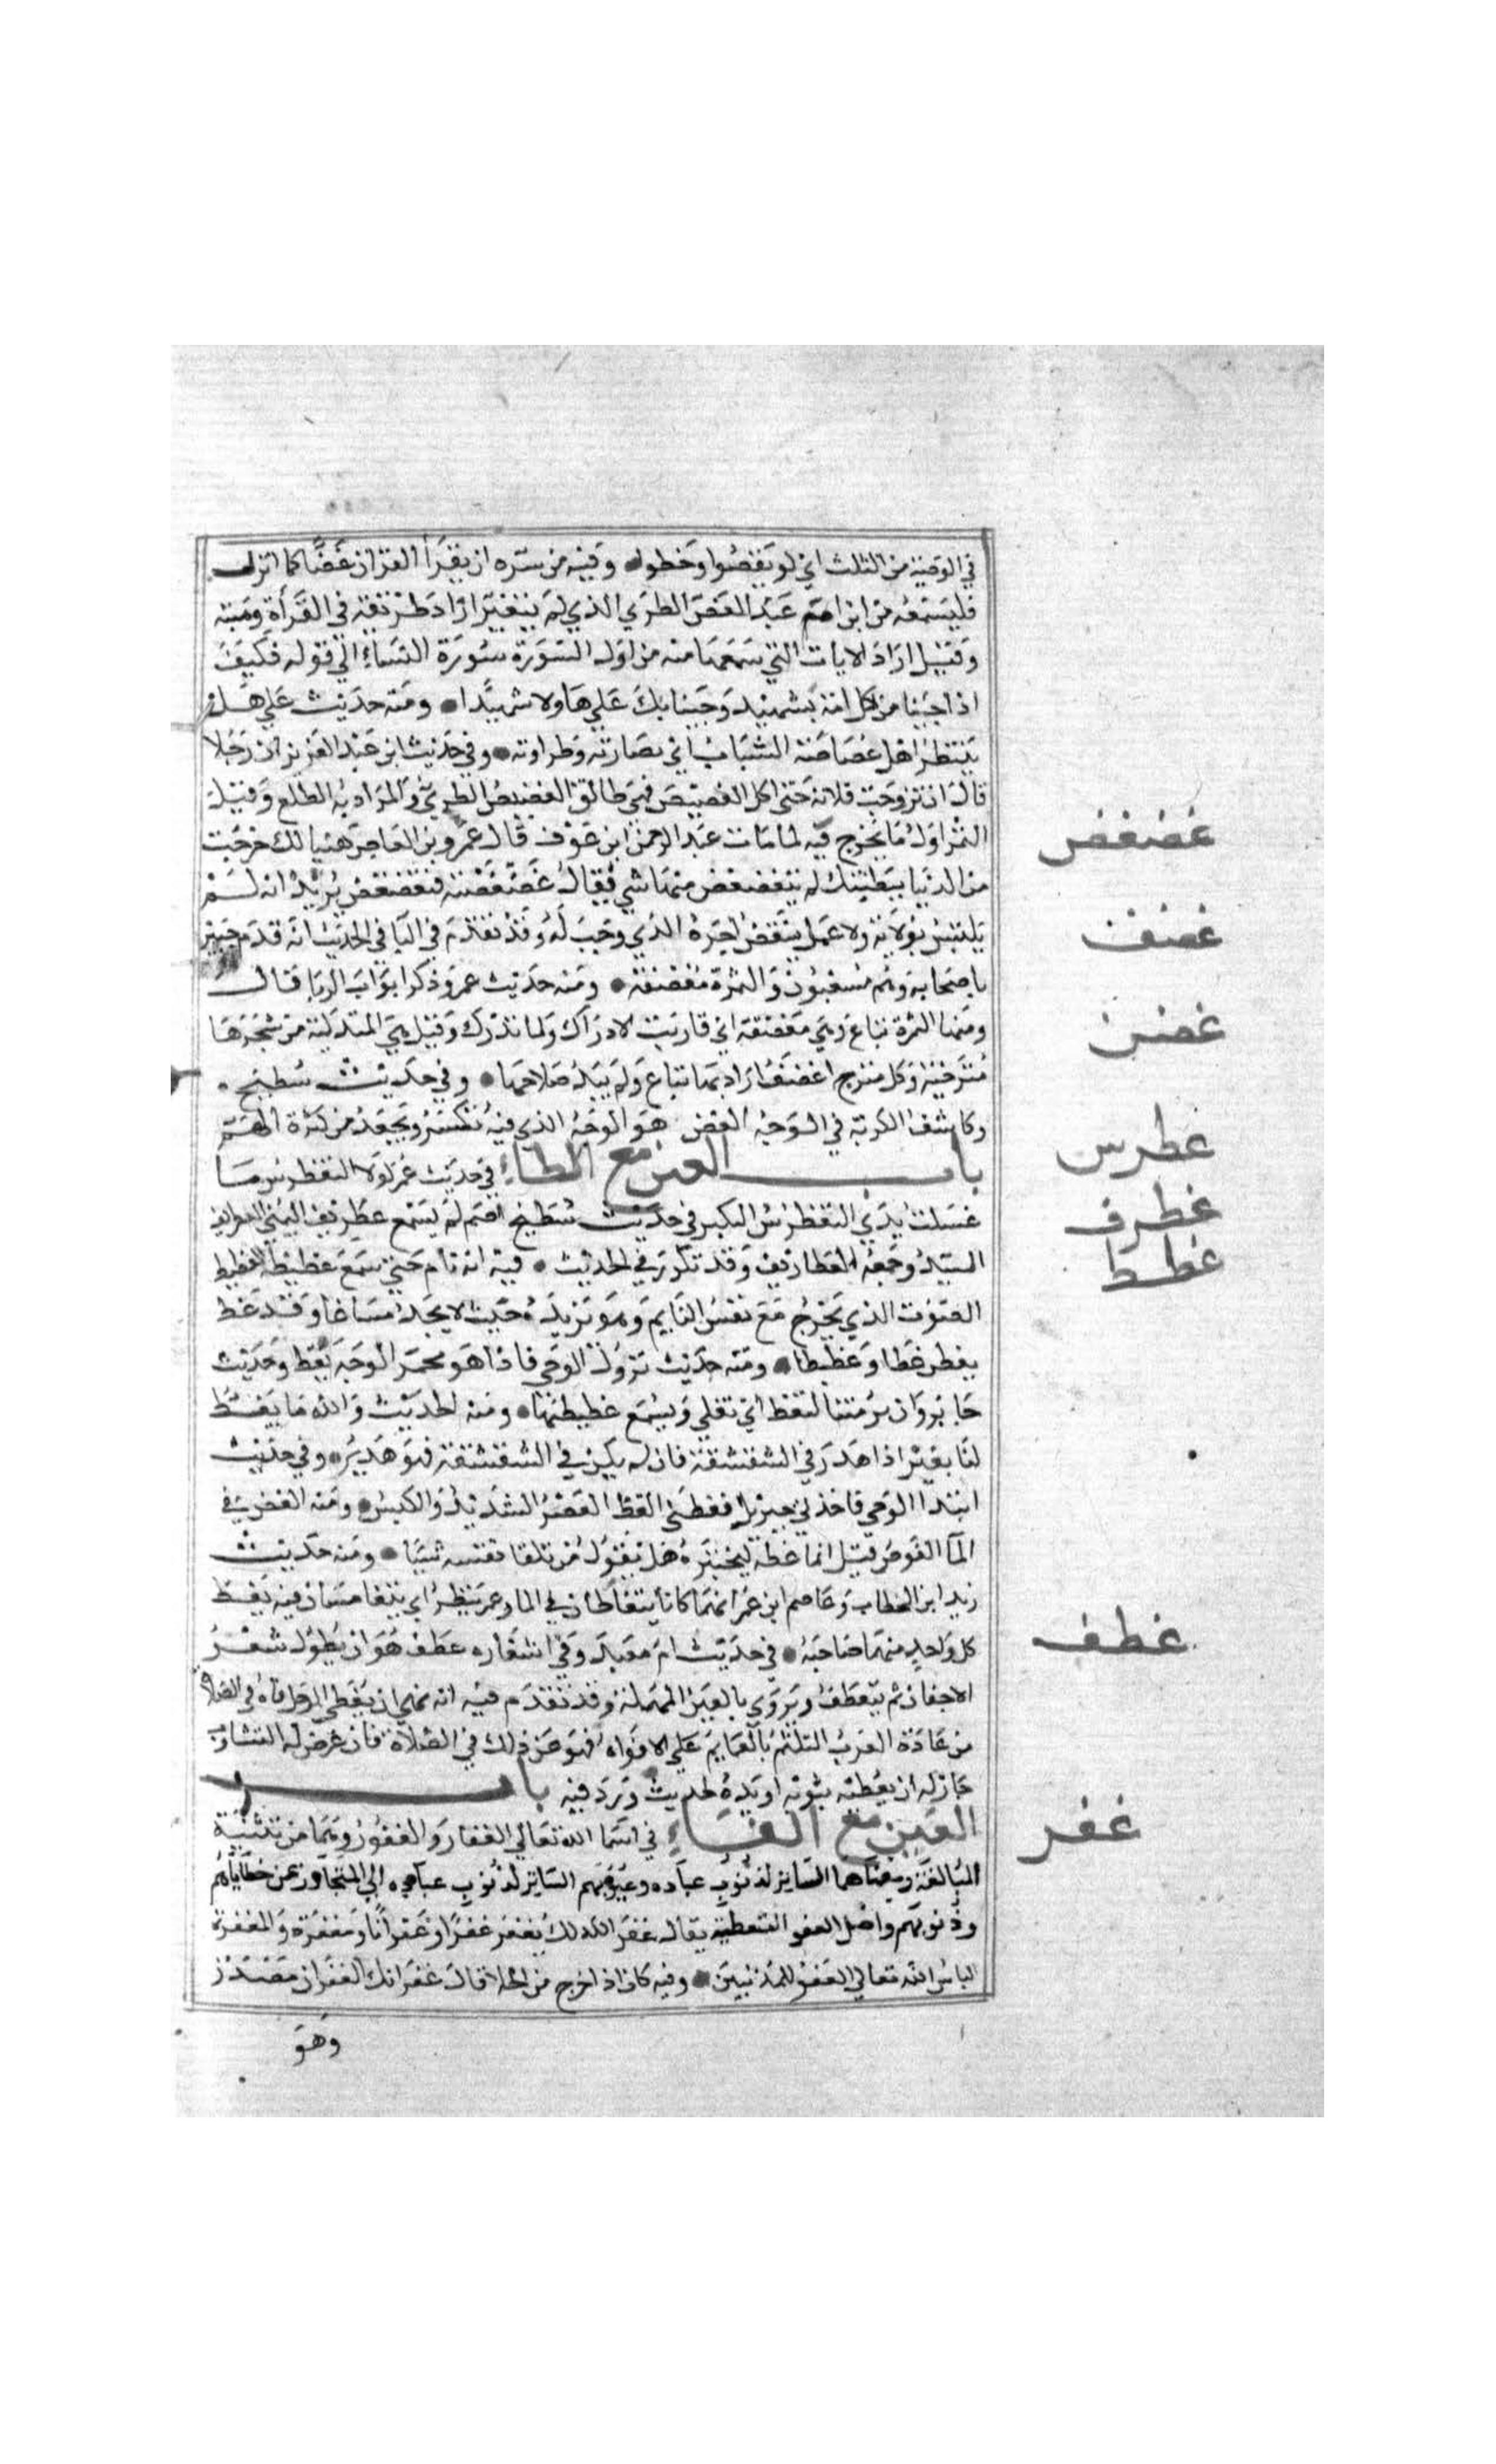 في الوصية من الثلث اي لو نقصوا وحطوا وفيه من سره ان يقرأ القران غضا كما انزل
فليسمعه من ابن ام عبد الغض الطري الذي لم يتغير اراد طريقه في القرأة ومنه
وقيل اراد الايات التي سمعها منه من اول السورة سورة النساء الي قوله فكيف
اذا جينا من كل امة بشهيد وجينا بك علي هاولا شهيدا ومنه حديث علي هل
ينتظر اهل غضاضة الشباب اي نضارته وطراوته وفي حديث ابن عبد العزيز ان رجلا
قال ان تزوجت فلانة حتي اكل الغضيض فهي طالق الغضيض الطري والمراد به الطلع وقيل
غضغض
الثمر اول ما يخرج فيه لما مات عبد الرحمن ابن عوف قال عمرو بن العاص هنيا لك خرجت
من الدنيا ببطنتك لم يتغضغض منها شي يقال غضغضته فتغضغض يريد انه لم
غضف
يلتبس بولاية ولا عمل ينقض اجره الذي وجب له وقد تقدم في البا في الحديث انه قدم خيبر
باصحابه وهم مسغبون والثمرة مغضفة ومنه حديث عمر وذكر ابواب الربا قال
غضن
ومنها الثمرة تباع وهي مغضفة اي قاربت الادراك ولما تدرك وقيل هي المتدلية من شجرها
مسترخية وكل مسترخ اغضف اراد بها تباع ولم يبد صلاحها وفي حديث سطيح
وكاشف الكربة في الوجه الغضن هو الوجه الذي فيه تكسر وتجعد من كثرة الهم
غطرس
باب الغين مع الطاء في حديث عمر لولا التغطرس ما
غطرف
غسلت يدي التغطرس الكبر في حديث سطيح اصم لم يسمع غطريف اليمن الغطريف
غطط
السيد وجمعه الغطاريف وقد تكرر في الحديث فيه انه نام حتي سمع غطيطه الغطيط
الصوت الذي يخرج مع نفس النايم وهو ترديده حيث لا يجد مساغا وقد غط
يغط غطا وغطيطا ومنه حديث نزول الوحي فاذا هو محمر الوجه يغط وحديث
جابر وان برمتنا لتغط اي تغلي ويسمع غطيطها ومنه الحديث والله ما يغط
لنا بعير اذا هدر في الشقشقة فان لم يكن في الشقشقة فهو هدير وفي حديث
ابتدا الوحي فاخذني جبريل فغطني الغط العصر الشديد والكبس ومنه الغط في
الما الغوص قيل انما غطه ليختبره هل يقول من تلقا نفسه شيا ومنه حديث
زيد ابن الخطاب وعاصم ابن عمر انهما كانا يتغاطان في الما وعمر ينظر اي يتغامسان فيه يغط
غطف
كل واحد منهما صاحبه في حديث ام معبد وفي اشفاره غطف هو ان يطول شعر
الاجفان ثم يتعطف ويروي بالعين المهملة وقد تقدم فيه انه نهي ان يغطي الرجل فاه في الصلاة
من عادة العرب التلثم بالعمايم علي الافواه فنهو عن ذلك في الصلاة فان عرض له التثاوب
جاز له ان يغطيه بثوبه او يده لحديث ورد فيه باب
غفر
الغين مع الفاء في اسما الله تعالي الغفار والغفور وهما من ابنية
المبالغة ومعناهما الساتر لذنوب عباده وعيوبهم الساتر لذنوب عباده المتجاوز عن خطاياهم
وذنوبهم واصل الغفر التغطية يقال غفر الله لك يغفر غفرا وغفرانا ومغفرة والمغفرة
الباس الله تعالي العفو للمذنبين وفيه كان اذا خرج من الخلا قال غفرانك الغفران مصدر
وهو